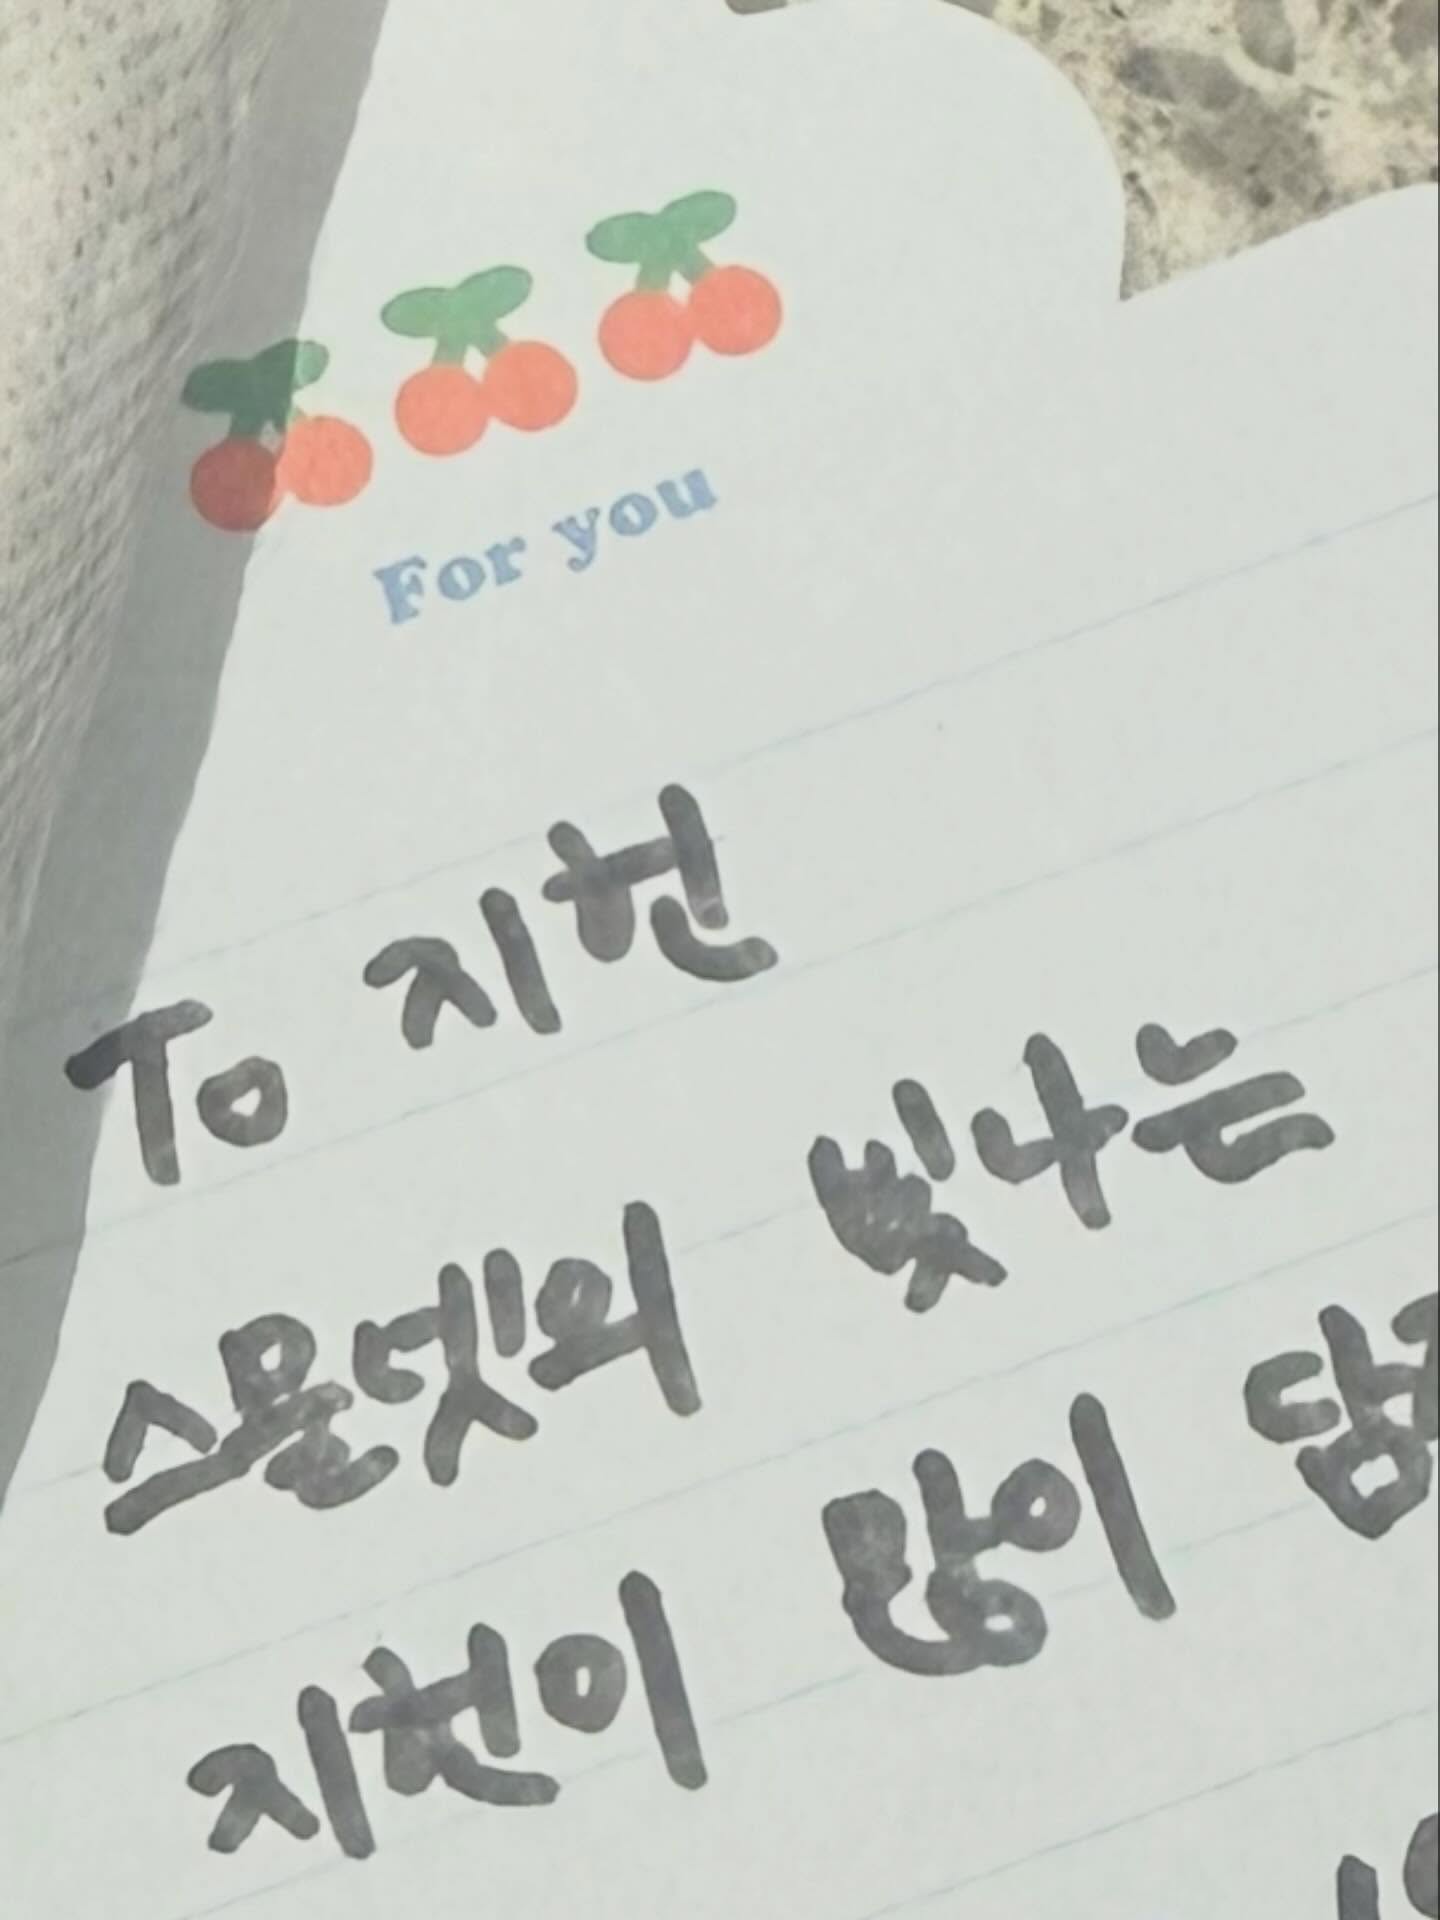 For you
To 지헌
스물넷의 빛나는
지헌이 많이 담